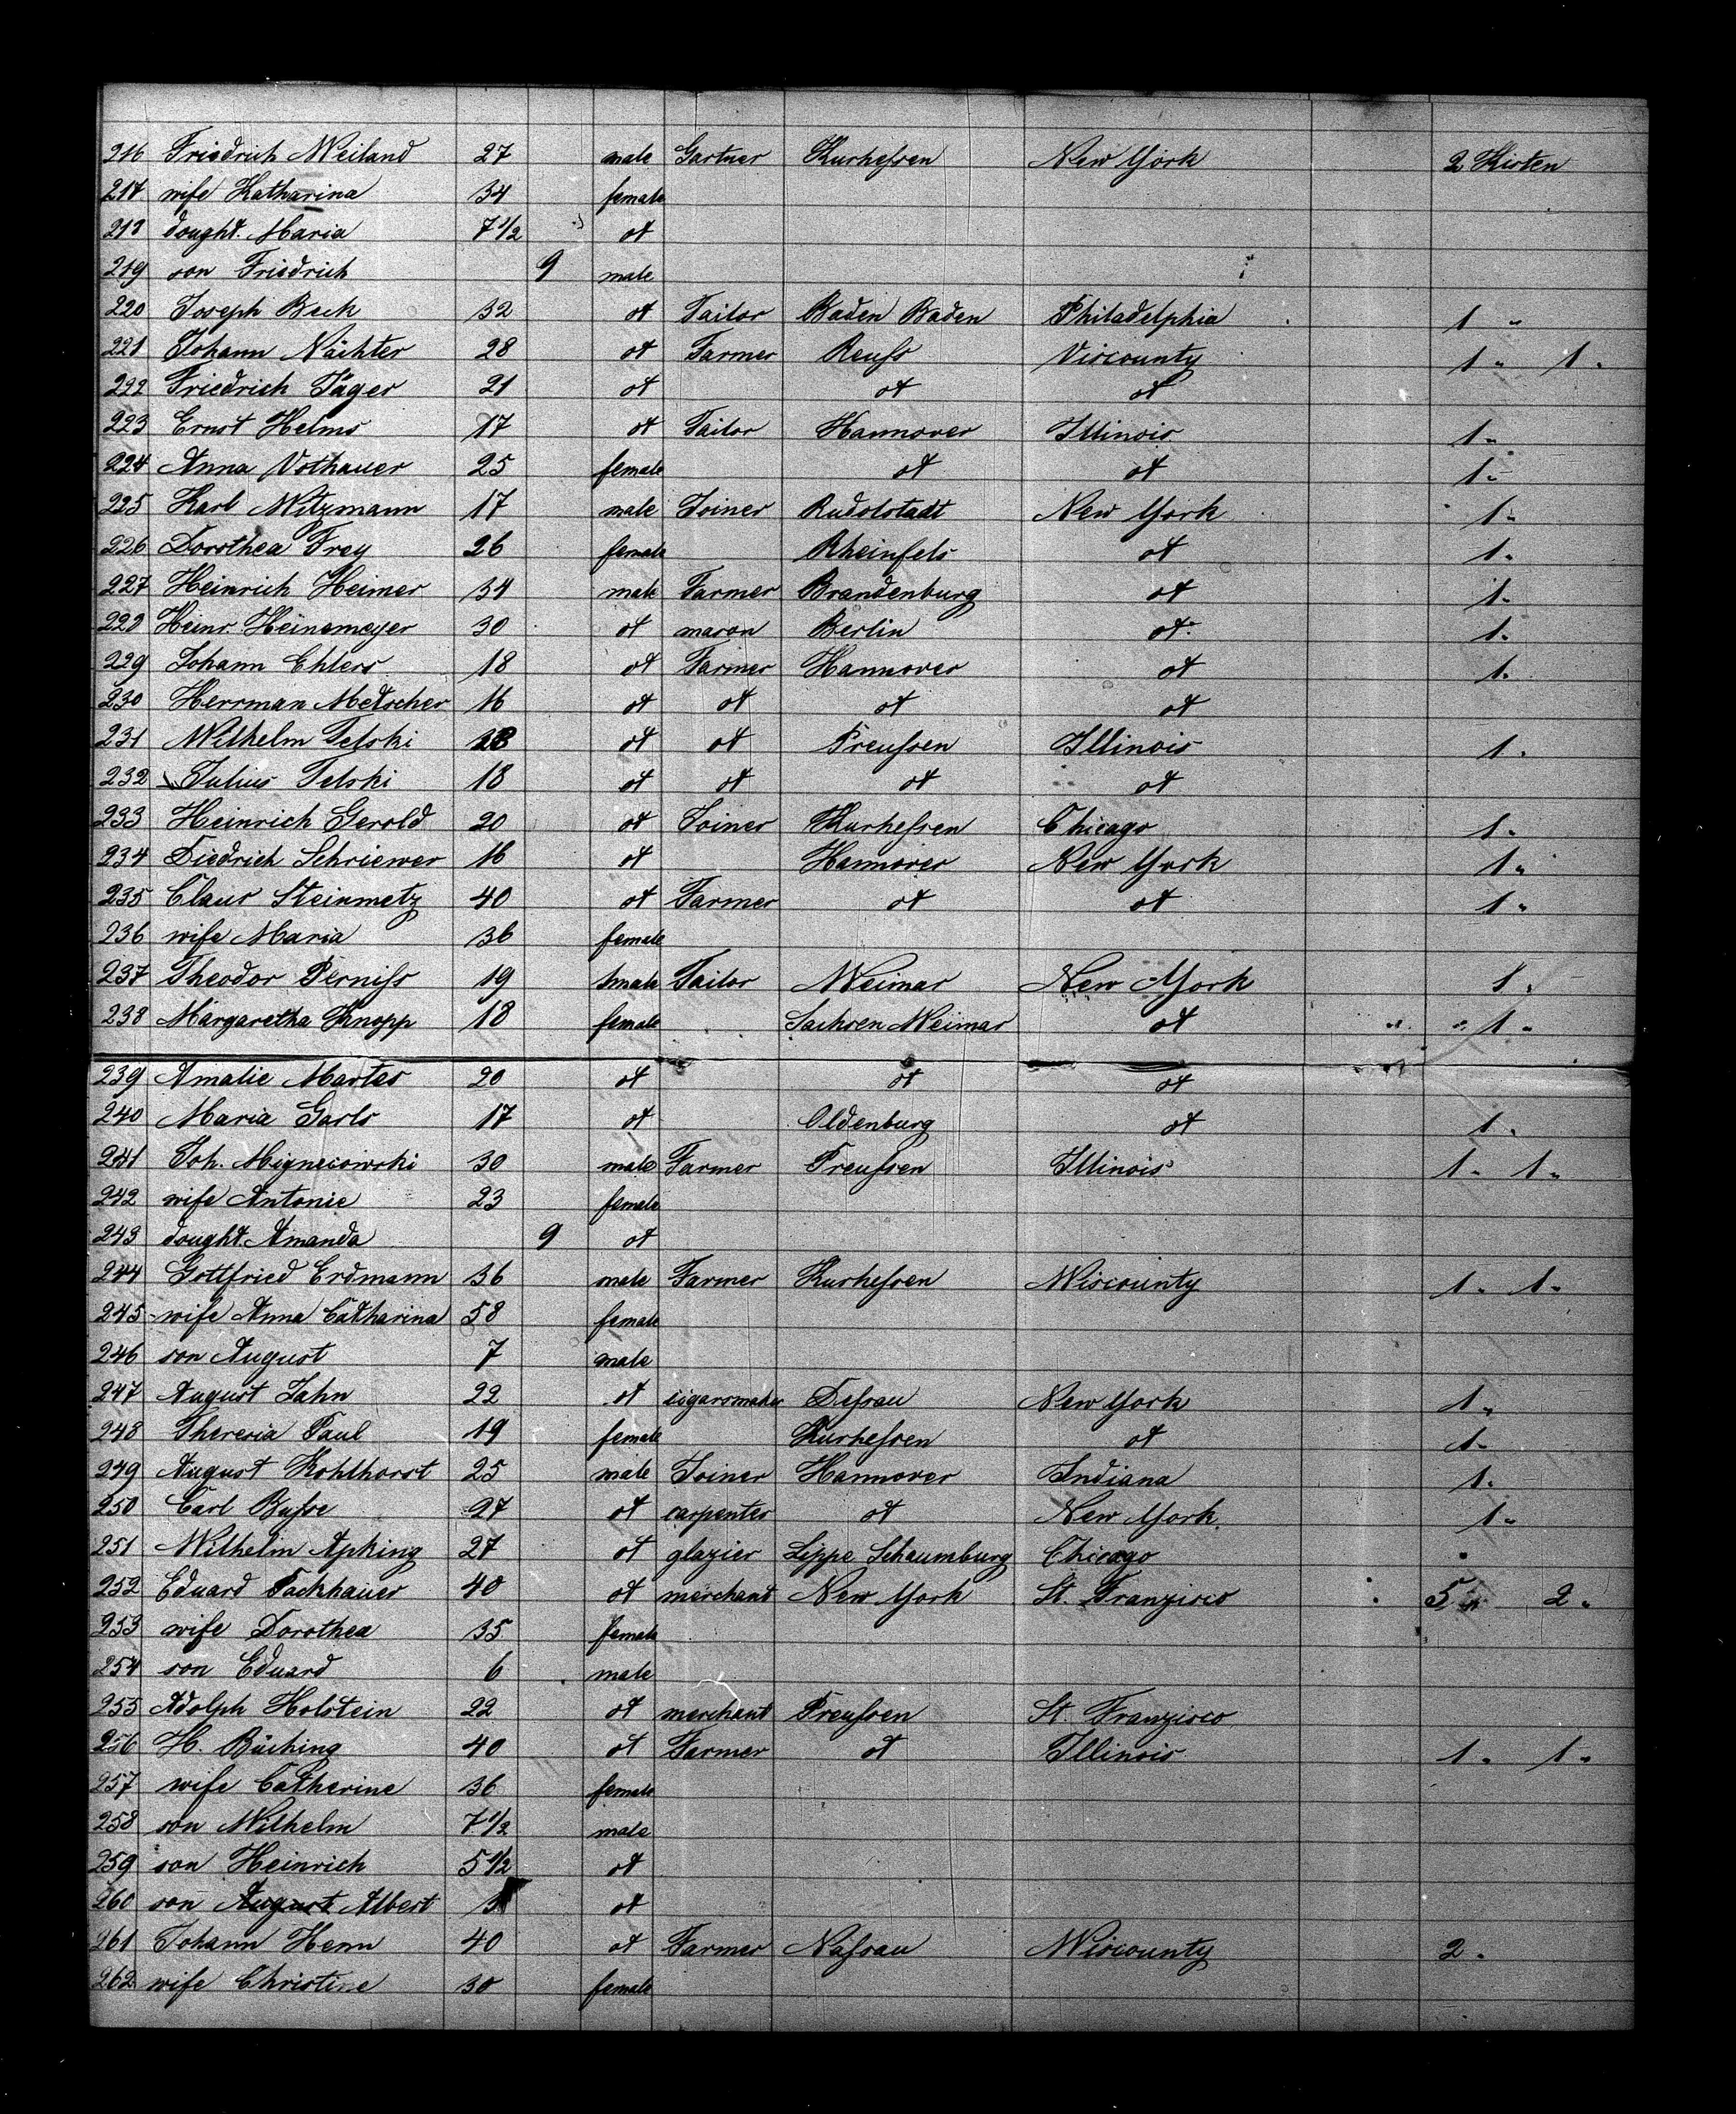 216 Friedrich Weiland 27 male Gartner Kurhefsen New York 2 Kisten
217 wife Katharina 34 female
218 dought. Maria 7 1/2 ot
219 son Friedrich 9 male
220 Joseph Beck 32 ot Tailor Baden Baden Philadelphia 1 "
221 Johann Nächter 28 ot Farmer Reufs Viscounty 1 " 1 "
222 Friedrich Jäger 21 ot ot ot
223 Ernst Helms 17 ot Tailor Hannover Illinois 1 "
224 Anna Vothauer 25 female ot ot 1 "
225 Karl Witzmann 17 male Joiner Rudolstadt New York 1 "
226 Dorothea Frey 26 female Rheinfels ot 1 "
227 Heinrich Heimer 34 male Farmer Brandenburg ot 1 "
228 Heinr. Heinemeyer 30 ot mason Berlin ot 1 "
229 Johann Ehlers 18 ot Farmer Hannover ot 1 "
230 Herrman Metscher 16 ot ot ot ot
231 Wilhelm Telski ot ot Preufsen Illinois 1 "
232 Julius Telski 18 ot ot ot ot
233 Heinrich Gerold 20 ot Joiner Kurhefsen Chicago 1 "
234 Diedrich Schriewer 16 ot Hannover New York 1 "
235 Claus Steinmetz 40 ot Farmer ot ot 1 "
236 wife Maria 36 female
237 Theodor Pernifs 19 male Tailor Weimar New York 1 "
238 Margaretha Knopp 18 female Sachsen Weimar ot 1 "
239 Amalie Martes 20 ot ot ot
240 Maria Garls 17 ot Oldenburg ot 1 "
241 Joh. Mignecowski 30 male Farmer Preufsen Illinois 1 " 1 "
242 wife Antonie 23 female
243 dought. Amanda 9 ot
244 Gottfried Erdmann 36 male Farmer Kurhefsen Wiscounty 1 " 1 "
245 wife Anna Catharina 58 female
246 son August 7 male
247 August Jahn 22 ot cigarsmaker Defsau New York 1 "
248 Theresia Paul 19 female Kurhefsen ot 1 "
249 August Kohlhorst 25 male Joiner Hannover Indiana 1 "
250 Carl Bufse 27 ot carpenter ot New York 1 "
251 Wilhelm Apking 27 ot glazier Lippe Schaumburg Chicago "
252 Eduard Packhauer 40 ot merchant New York St. Franzisco 5 " 2 "
253 wife Dorothea 35 female
254 son Eduard 6 male
255 Adolph Holstein 22 ot merchant Preufsen St. Franzisco
256 H. Büching 40 ot Farmer ot Illinois 1 " 1 "
257 wife Catherine 36 female
258 son Wilhelm 7 1/2 male
259 son Heinrich 5 1/2 ot
260 son August Albert 3 ot
261 Johann Henn 40 ot Farmer Nafsau Wiscounty 2 "
262 wife Christine 30 female